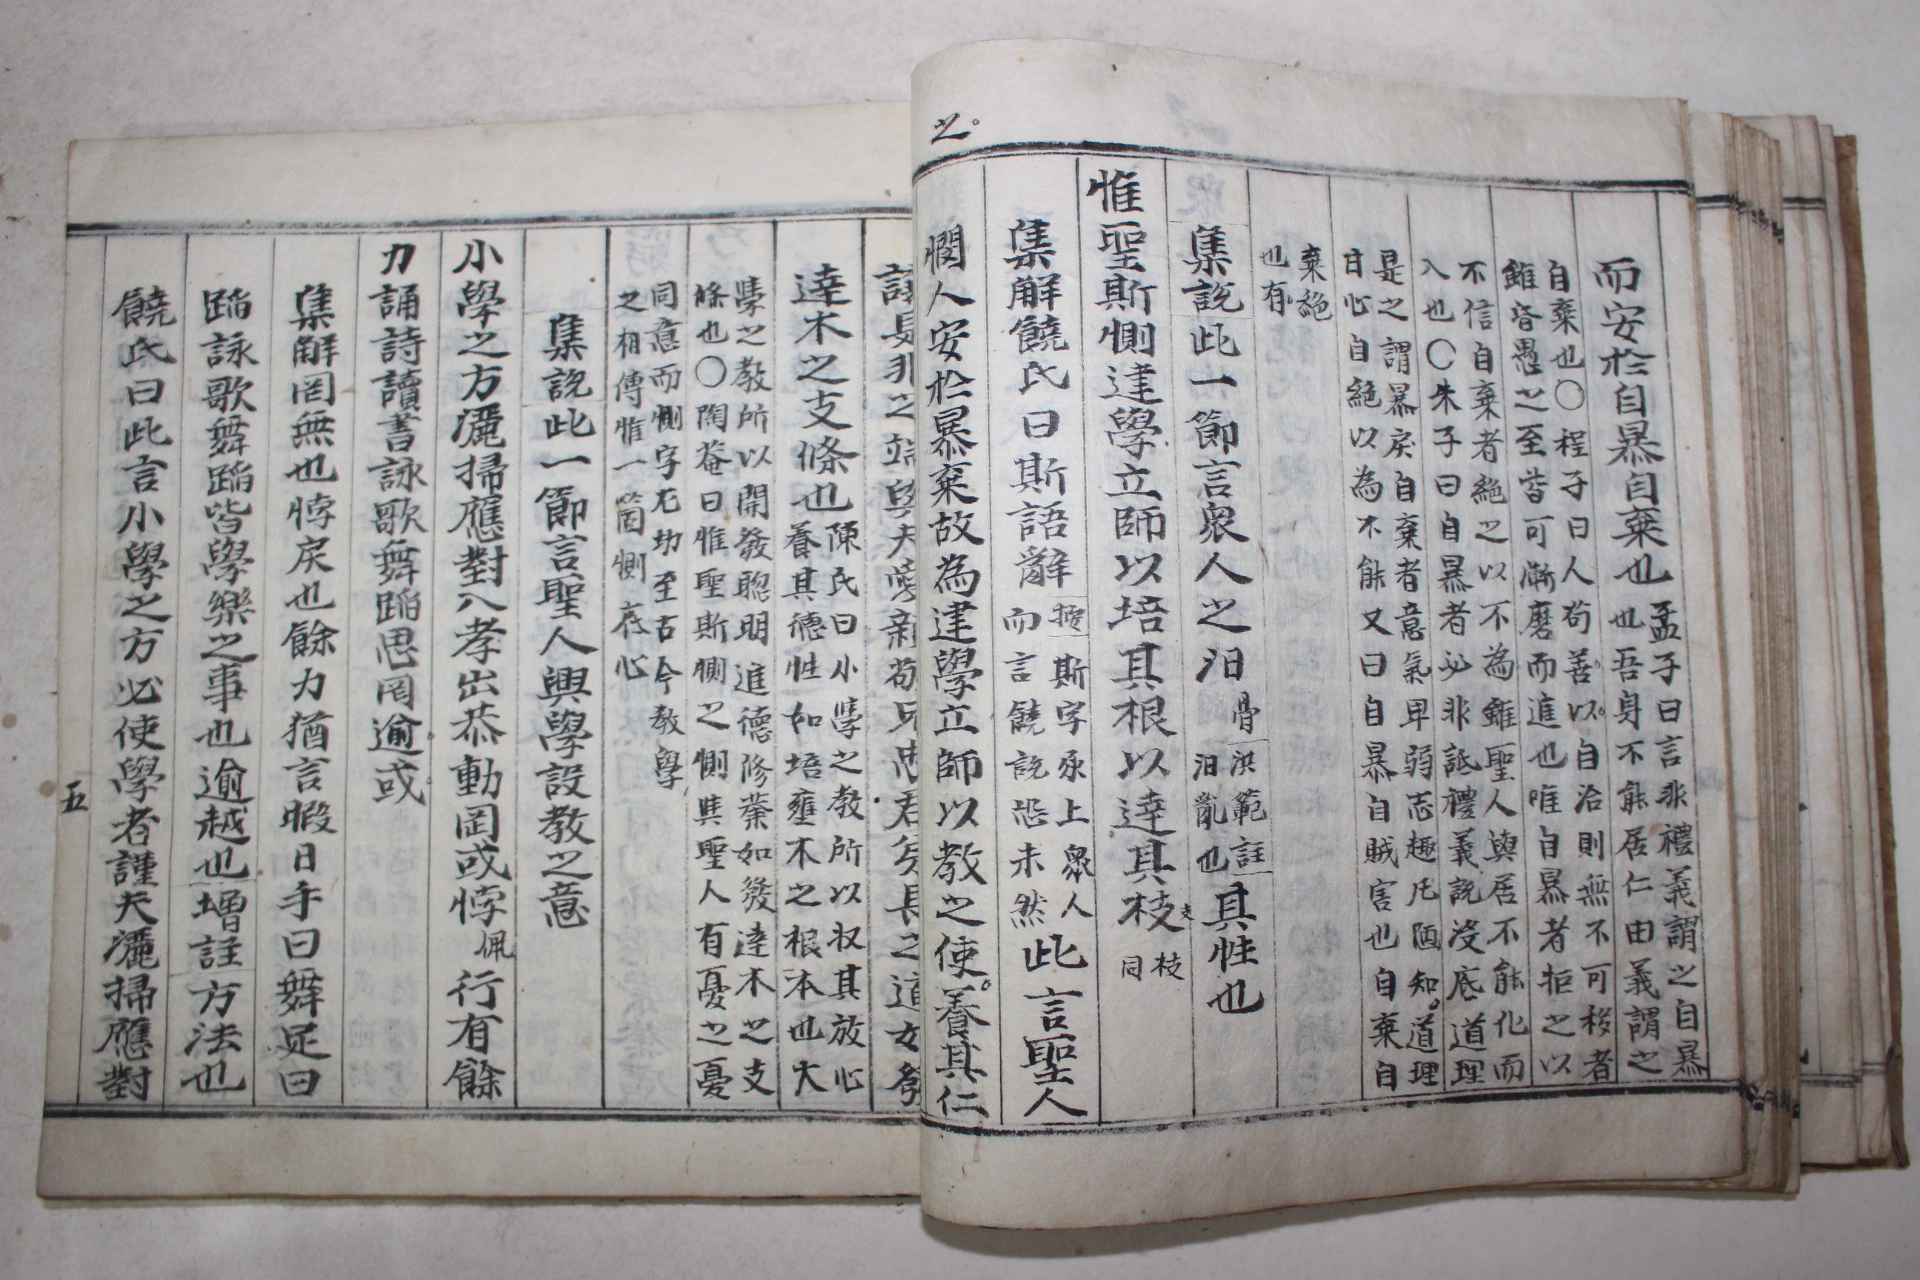 之
而安於自暴自棄也
孟子曰言非禮義謂之自暴
也吾身不能居仁由義謂之
自棄也〇程子曰人苟善以自治則無不可移者
雖昏愚之至皆可漸磨而進也唯自暴者拒之以
不信自棄者絶之以不為雖聖人與居不能化而
入也〇朱子曰自暴者必非詆禮義說没底道理
是之謂暴戾自棄者意氣卑弱志趣凡陋知道理
甘心自絶以為不能又曰自暴自賊害也自棄自
棄絶
也有
集説此一節言衆人之汨骨洪範註汨亂也其性也
惟聖斯惻建學立師以培其根以達其枝支枝同
集解饒氏曰斯語辭按斯字承上衆人而言饒説恐未然此言聖人
憫人安於暴棄故為建學立師以教之使養其仁
之端與夫愛親敬兄忠君弟長之道
達木之支條也
陳氏曰小學之教所以収其放心
養其德性如培壅木之根本也大
學之教所以開發聦明進德修業如發達木之支
條也〇陶菴曰惟聖斯惻之惻與聖人有憂之憂
同意而惻字尤功至古今教學
之相傳惟一箇惻底心
集説此一節言聖人興學設教之意
小學之方灑掃應對入孝出恭動罔或悖佩行有餘
力誦詩讀書詠歌舞蹈思罔逾或
集解罔無也悖戾也餘力猶言暇日手曰舞足曰
蹈詠歌舞蹈皆學樂之事也逾越也增註方法也
饒氏曰此言小學之方必使學者謹夫灑掃應對
五